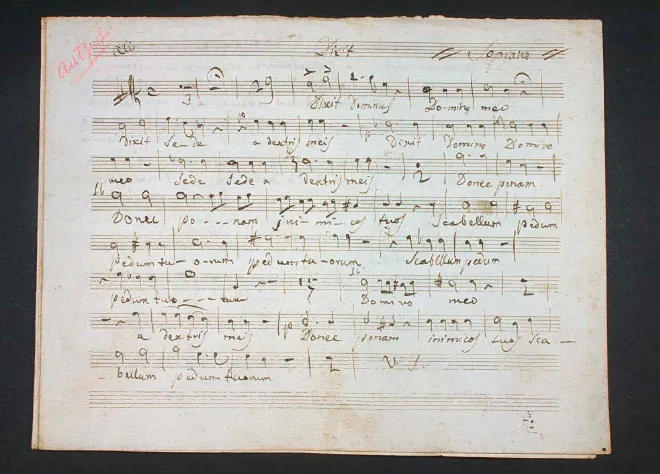 Autogr. All.º Dixit Soprano
3 29 Dixit Dominus Domino meo
Dixit Sede a dextris meis Dixit Domino Domino
meo Sede Sede a dextris meis, 2 Donec ponam
16
Donec po---nam ini-mi-cos tuos Scabellum pedum
pedum tu-orum pedum tu-orum. Scabellum pedum
pedum tuo---rum 17 Domino meo
a dextris meis Donec ponam inimicos tuos Sca-
-bellum pedum tuorum 2 V. S.